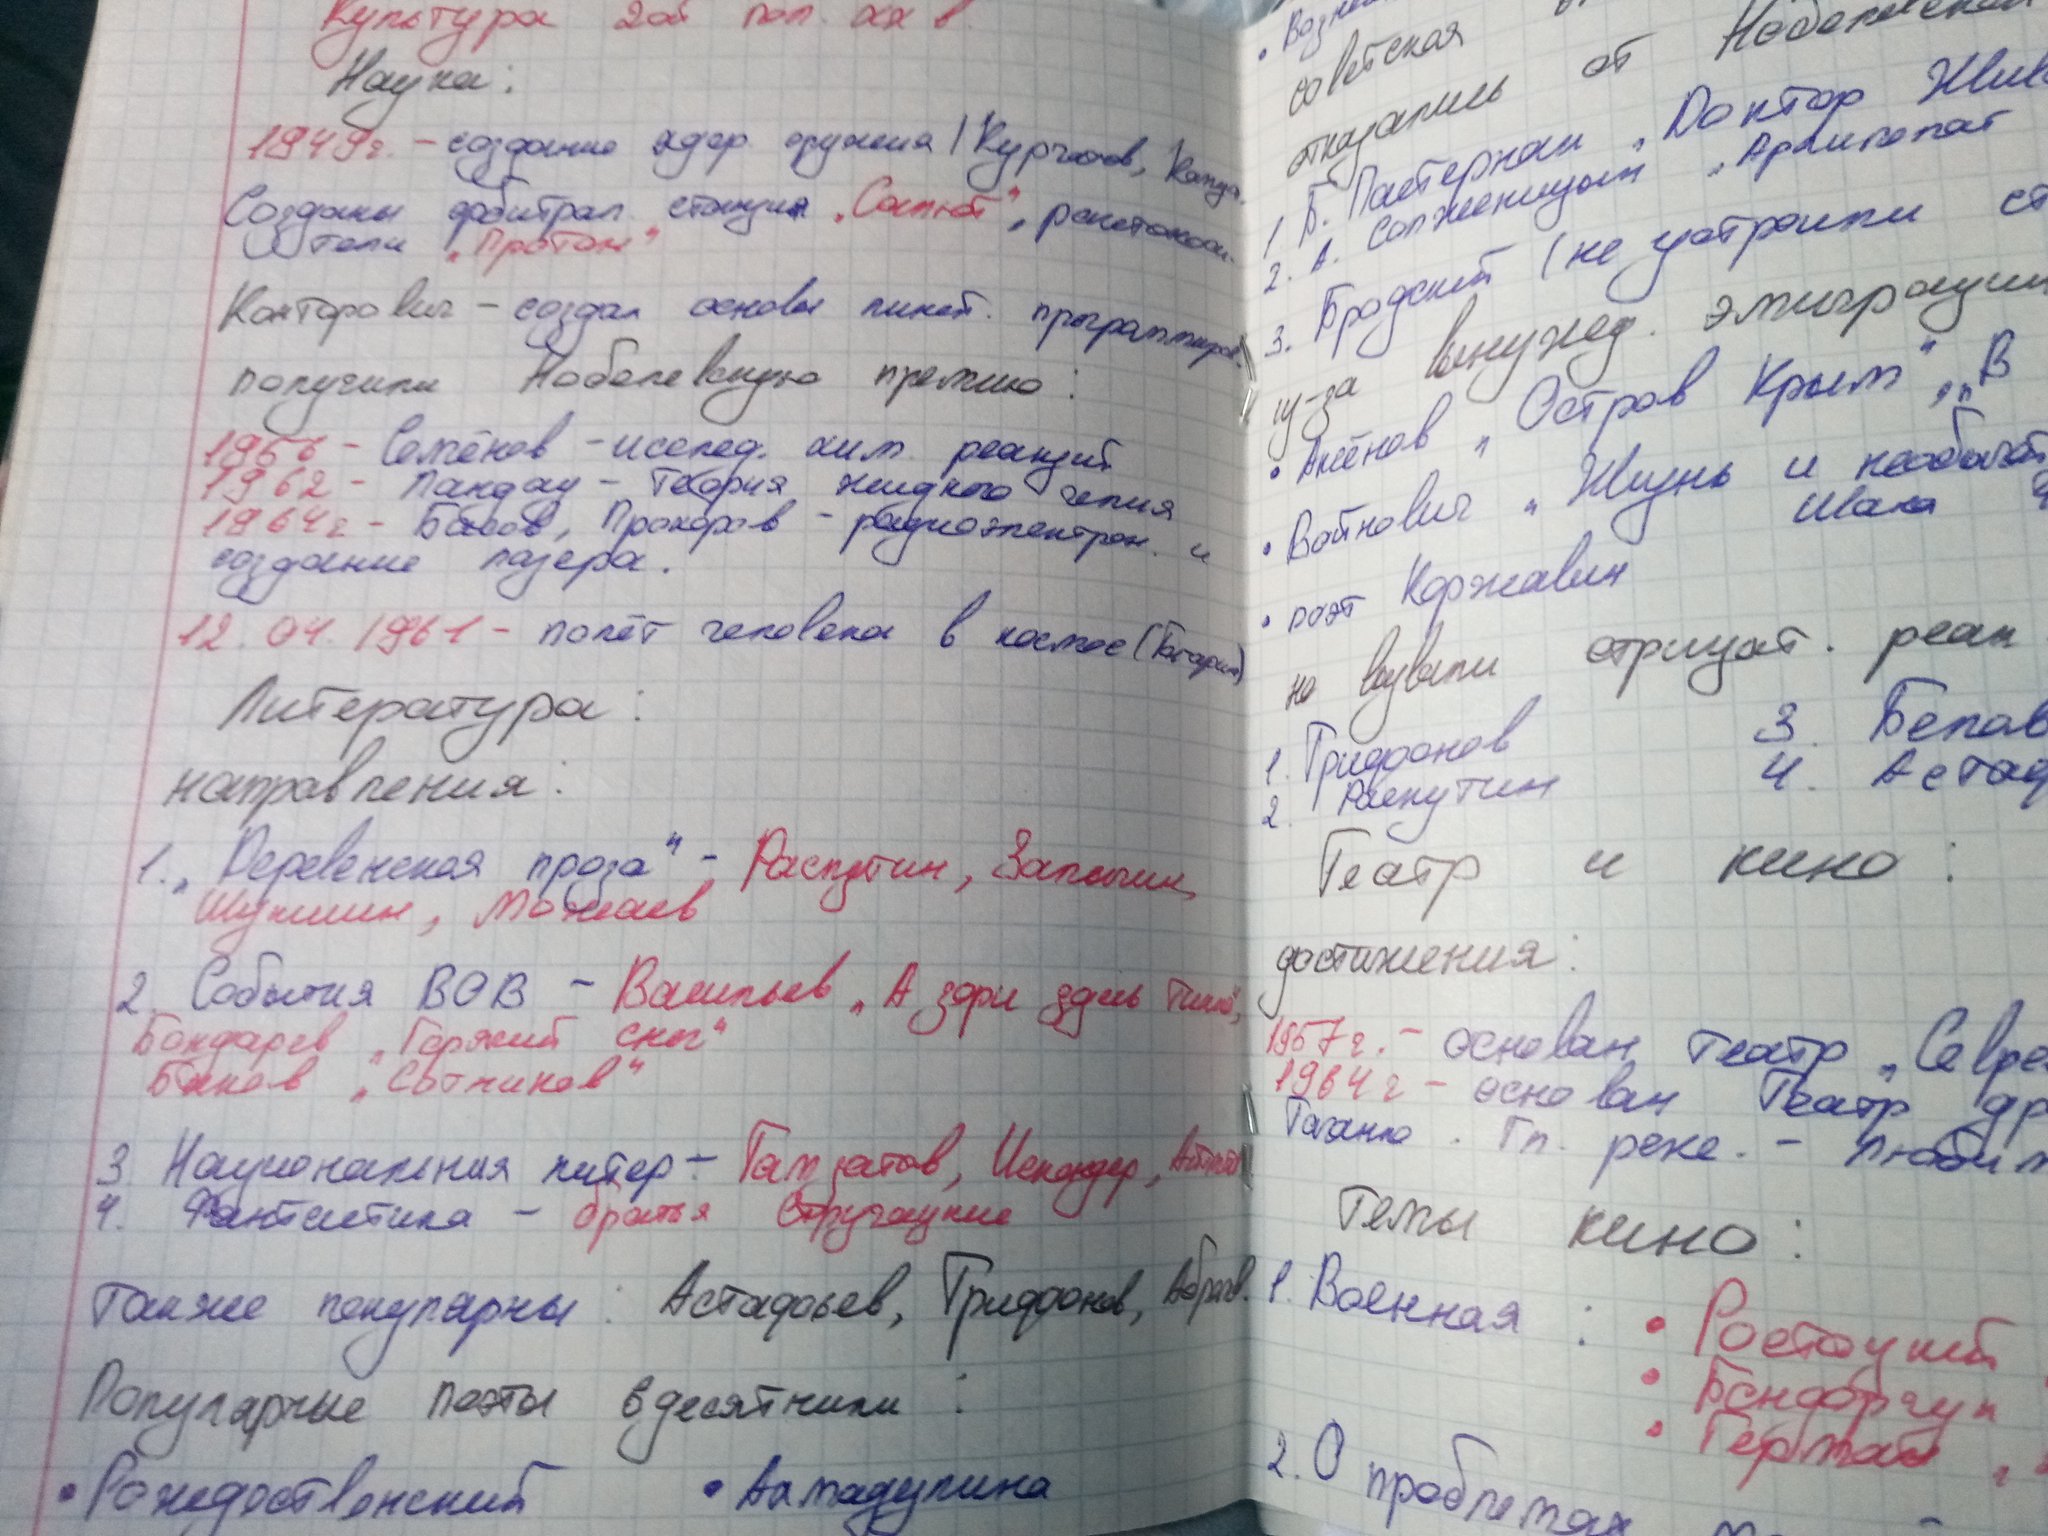 Культура 2ой пол. XX в.
Наука:
1949г. - создание ядер. оружия (Курчатов, Капиц.
Созданы орбитрал. станция „Салют", ракетоноси-
тели „Протон"
Канторович - создал основы линей. программиров.
получили Нобелевскую премию:
1956 - Семёнов - исслед. хим. реакций
1962 - Ландау - теория жидкого гелия
1964г - Басов, Прохоров - радиоэлектрон. и
создание лазера.
12.04.1961 - полёт человека в космос (Гагарин)
Литература:
направления:
1. „Деревенская проза" - Распутин, Залыгин,
Шукшин, Можаев
2. События ВОВ - Васильев „А зори здесь тихие",
Бондарев „Горячий снег"
Быков „Сотников"
3. Национальная литер - Гамзатов, Искандер,
4. Фантастика - братья Стругацкие
также популярны: Астафьев, Трифонов, Абрам.
Популярные поэты
• Рождественский • Ахмадулина
• Возне
советская
отказались от Нобелевской
1. Б. Пастернак „Доктор Жив
2. А. Солженицын „Архипелаг
3. Бродский (не устроили ст
из-за вынужд. эмиграции
• Аксёнов „Остров Крым", „В
• Войнович „Жизнь и необычай
• поэт Коржавин
не вызвали отрицат. реак
1. Трифонов 3. Белов
2. Распутин 4. Астаф
Театр и кино:
достижения:
1957г. - основан театр „Совре
1964г - основан Театр др
Таганке. Гл. реж. - Любим
Темы кино:
1. Военная: • Ростоцкий
• Бондарчук
• Герман
2. О проблемах